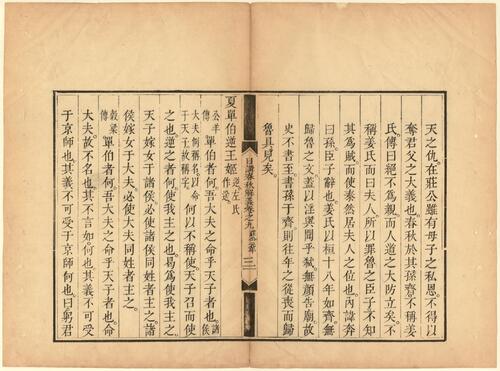 天之仇。在莊公雖有母子之私恩。不得以
奪君父之大義也。春秋於其孫齊。不稱姜
氏。傳曰。絕不為親。而人道之大防立矣。不
稱姜氏。而曰夫人。所以罪魯之臣子。不知
其為賊。而使泰然居夫人之位也。內諱奔
曰孫。臣子辭也。姜氏以桓十八年如齊。無
歸魯之文。蓋以淫與聞乎弒。無顏告廟。故
史不書至。書孫于齊。則往年之從喪而歸
魯具見矣。
日講春秋解義卷之九
三
夏單伯逆王姬 逆左氏作送
公羊傳 單伯者何。吾大夫之命乎天子者也。諸侯
大夫例稱名以命于天子故稱字 何以不稱使。天子召而使
之也。逆之者何。使我主之也。曷為使我主之。
天子嫁女于諸侯。必使諸侯同姓者主之。諸
侯嫁女于大夫。必使大夫同姓者主之。
穀梁傳 單伯者何。吾大夫之命乎天子者也。命
大夫。故不名也。其不言如何也。其義不可受
于京師也。其義不可受于京師何也。曰。躬君